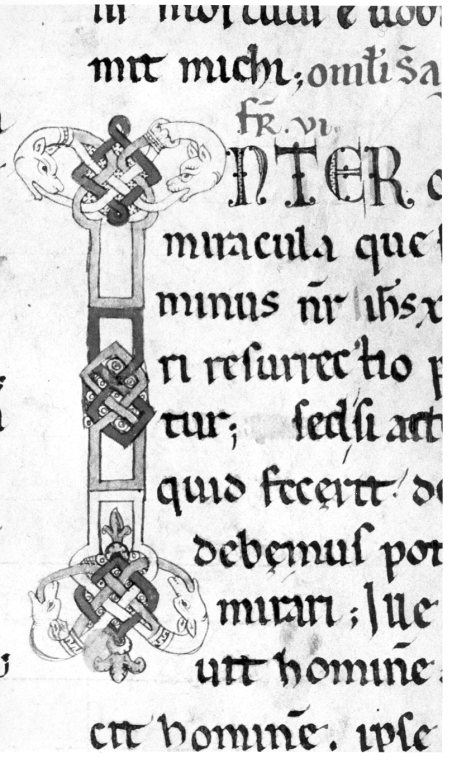 mit michi; omĩ. S. A
FR̃. VI.
INTER O
miracula que
minus nr̃ ih̅s x
ri resurrectio p
tur; sed si att
quid fecerit de
debęmus pot
mirari; Iue
uit hominē
cit hominē. ipse